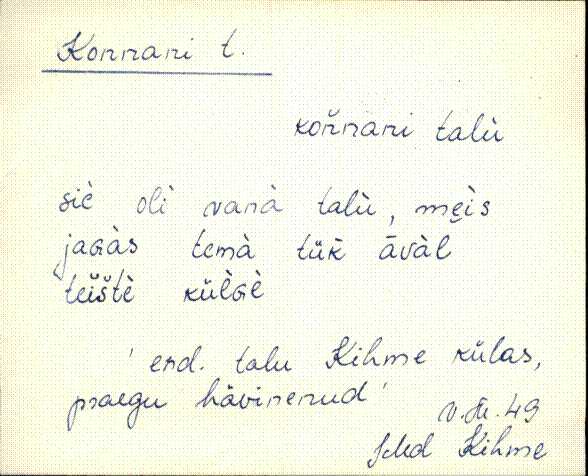 Konnani t.
koǹnani talù
siè oli vanà talù, męis
jaGàs temà tüḱ āvàl
teištè küĺGè
' end. talu Kihme külas,
praegu hävinenud '
49
Kihme